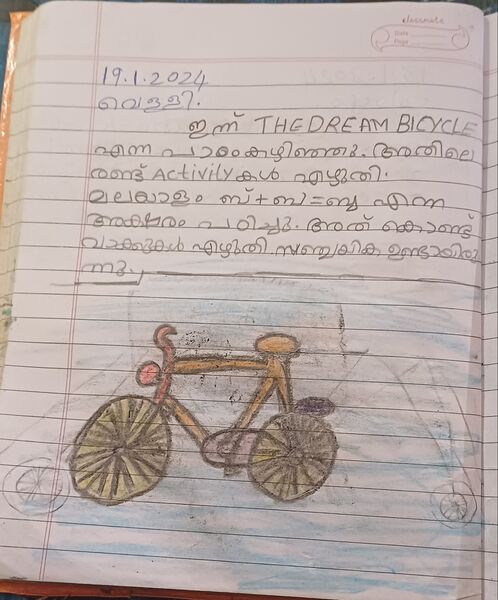 classmate
Date
Page
19.1.2024
വെള്ളി.
ഇന്ന് THE DREAM BICYCLE
എന്ന പാഠംകഴിഞ്ഞു. അതിലെ
രണ്ട് Activityകൾ എഴുതി.
മലയാളം ബ്+ബ=ബ്ബ എന്ന
അക്ഷരം പഠിച്ചു. അത് കൊണ്ട്
വാക്കുകൾ എഴുതി. സഞ്ചയിക ഉണ്ടായിരു
ന്നു.